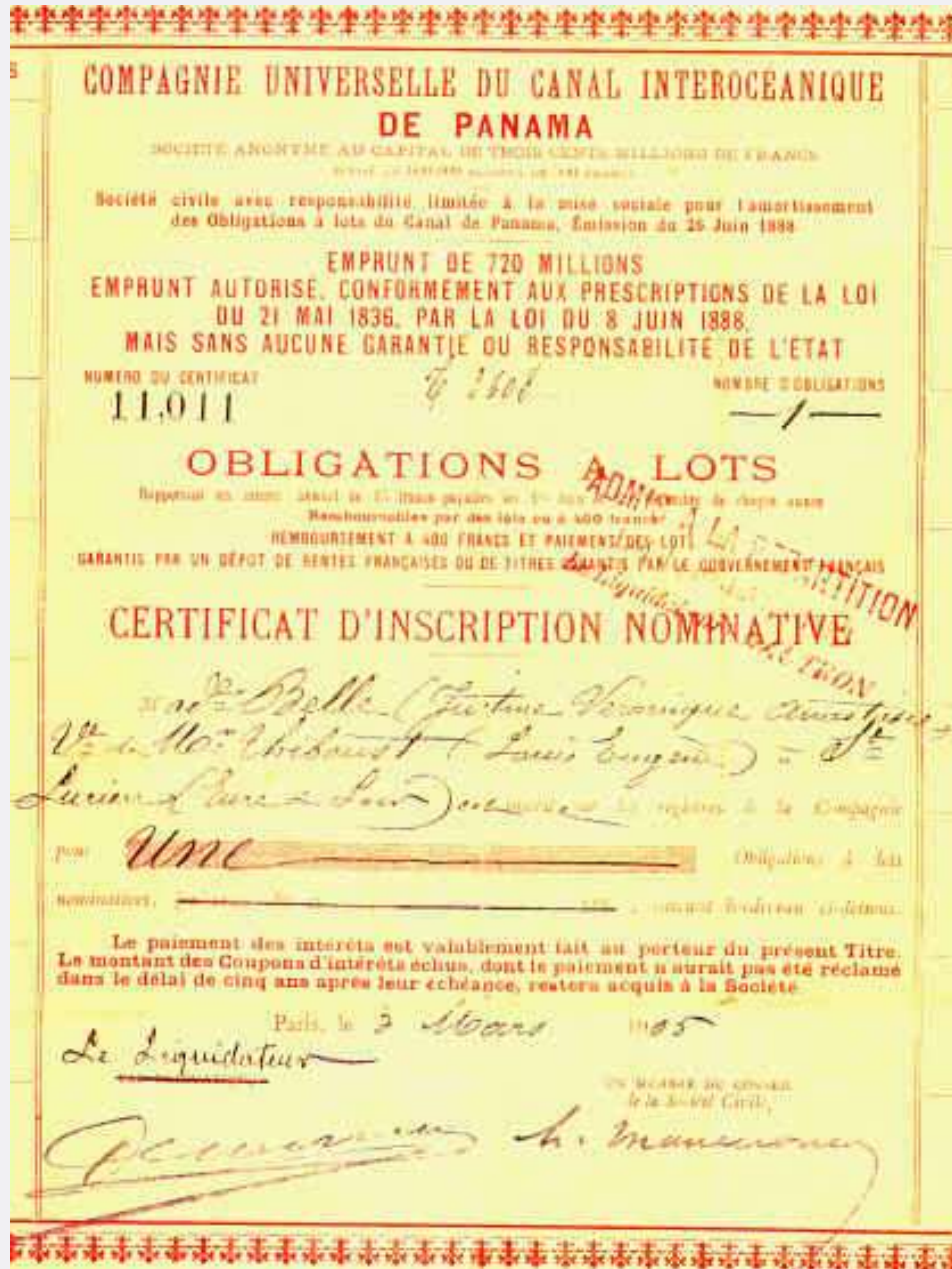 COMPAGNIE UNIVERSELLE DU CANAL INTEROCÉANIQUE
DE PANAMA
SOCIÉTÉ ANONYME AU CAPITAL DE TROIS CENTS MILLIONS DE FRANCS
Société civile avec responsabilité limitée à la mise sociale pour l'amortissement
des Obligations à lots du Canal de Panama, Émission du 26 Juin 1888
EMPRUNT DE 720 MILLIONS
EMPRUNT AUTORISÉ, CONFORMÉMENT AUX PRESCRIPTIONS DE LA LOI
DU 21 MAI 1836, PAR LA LOI DU 8 JUIN 1888,
MAIS SANS AUCUNE GARANTIE OU RESPONSABILITÉ DE L'ÉTAT
NUMÉRO DU CERTIFICAT
NOMBRE D'OBLIGATIONS
11,011
1
OBLIGATIONS A LOTS
Remboursables par des lots ou à 400 francs
REMBOURSEMENT A 400 FRANCS ET PAIEMENT DES LOTS
GARANTIS PAR UN DÉPOT DE RENTES FRANÇAISES OU DE TITRES GARANTIS PAR LE GOUVERNEMENT FRANÇAIS
ADMIS A LA RÉPARTITION
CERTIFICAT D'INSCRIPTION NOMINATIVE
Belle (Justine Véronique
Louis Eugène)
Lucien (Eure & Loir) registres de la Compagnie
pour Une Obligations à lots
nominatives,
Le paiement des intérêts est valablement fait au porteur du présent Titre.
Le montant des Coupons d'intérêts échus, dont le paiement n'aurait pas été réclamé
dans le délai de cinq ans après leur échéance, restera acquis à la Société
Paris, le 3 Mars 1905
Le Liquidateur
UN MEMBRE DU CONSEIL
de la Société Civile,